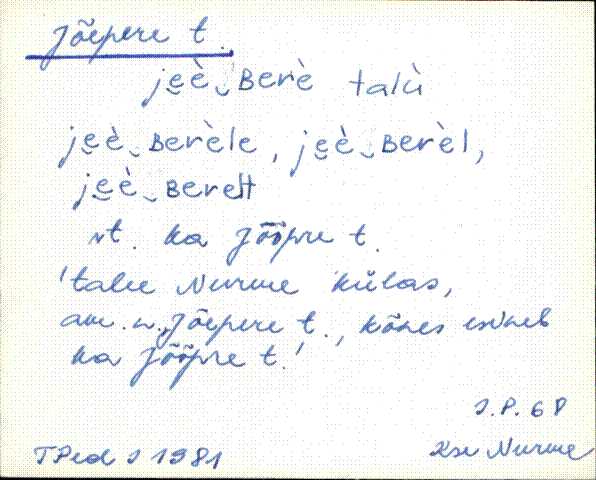 Jõepere t.
je̮è‿ʙerè talù
je̮è‿ʙerèle, je̮è‿ʙerèl,
je̮è‿ʙerelt
vt. ka Jõõpre t.
'talu Nurme külas,
am. n. Jõepere t., kõnes esineb
ka Jõõpre t.'
J.P. 68
TPedI 1981
Kse Nurme